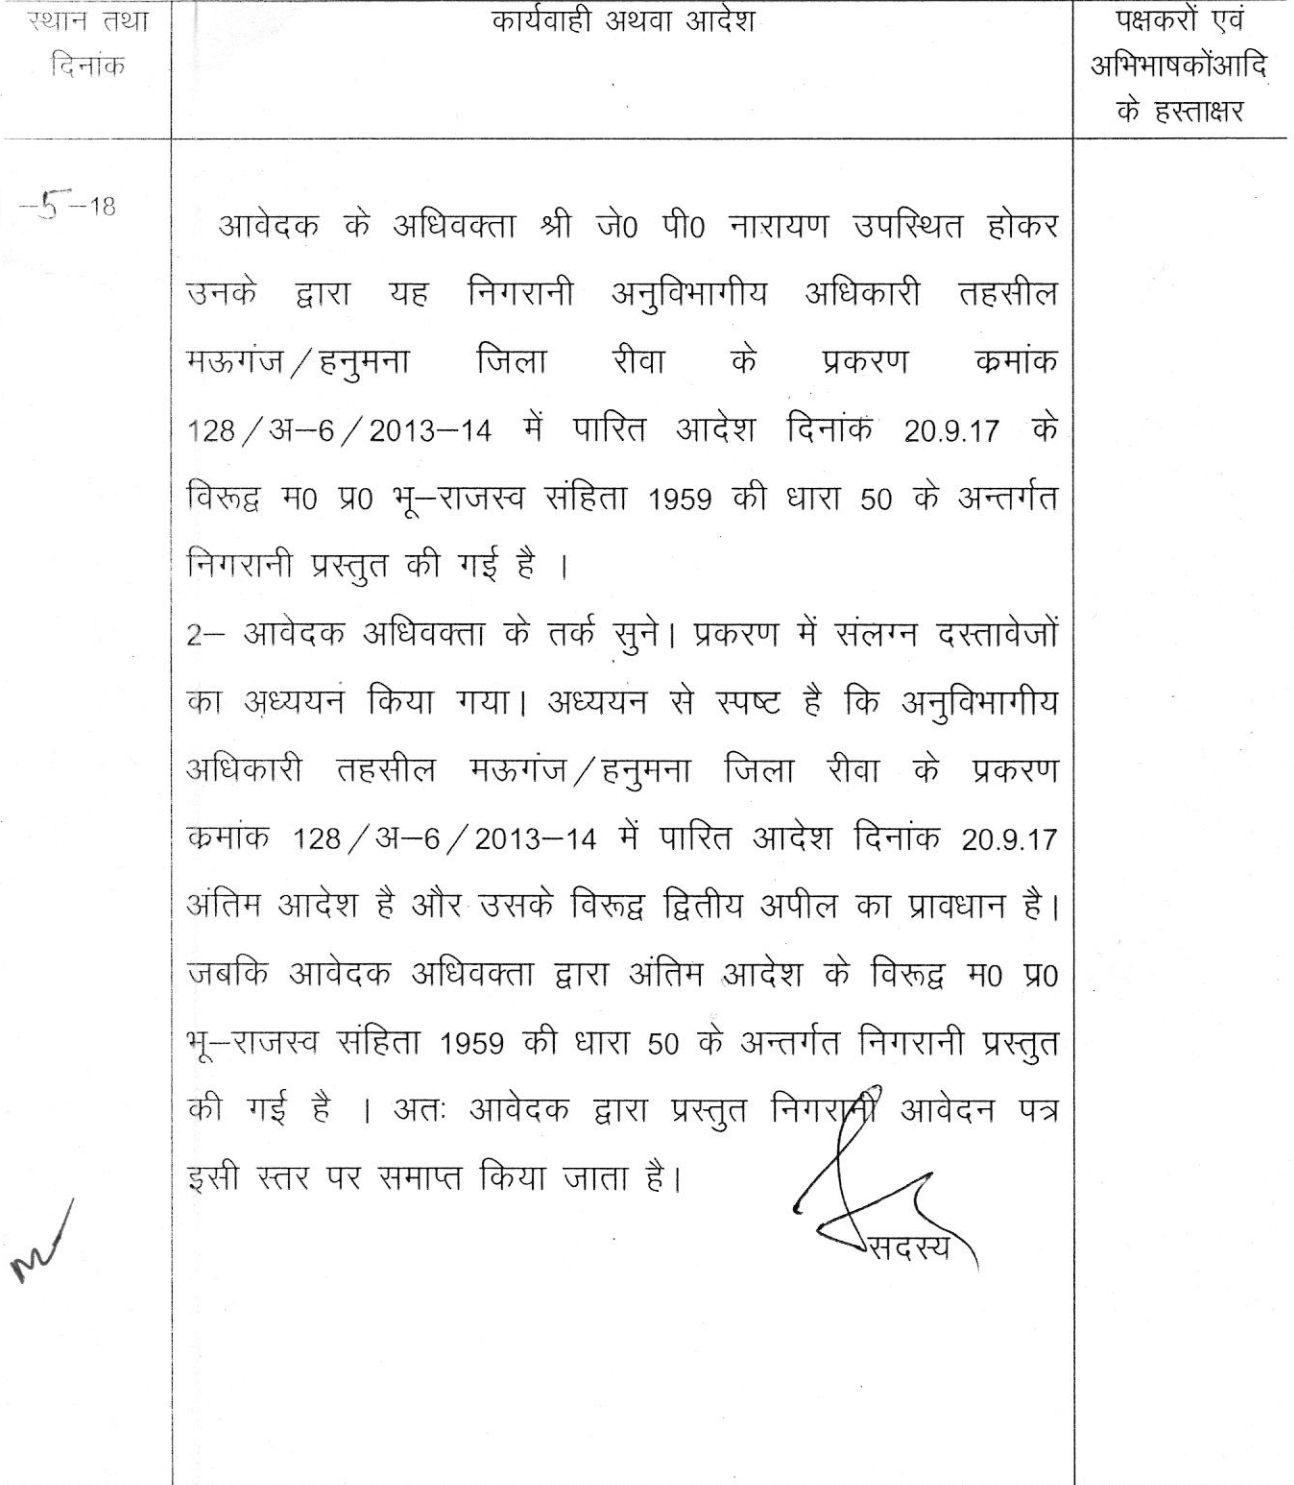 स्थान तथा
दिनांक
कार्यवाही अथवा आदेश
पक्षकरों एवं
अभिभाषकोंआदि
के हस्ताक्षर
–5–18
आवेदक के अधिवक्ता श्री जे0 पी0 नारायण उपस्थित होकर
उनके द्वारा यह निगरानी अनुविभागीय अधिकारी तहसील
मऊगंज/हनुमना जिला रीवा के प्रकरण कमांक
128/अ–6/2013–14 में पारित आदेश दिनांक 20.9.17 के
विरूद्व म0 प्र0 भू–राजस्व संहिता 1959 की धारा 50 के अन्तर्गत
निगरानी प्रस्तुत की गई है ।
2– आवेदक अधिवक्ता के तर्क सुने। प्रकरण में संलग्न दस्तावेजों
का अध्ययन किया गया। अध्ययन से स्पष्ट है कि अनुविभागीय
अधिकारी तहसील मऊगंज/हनुमना जिला रीवा के प्रकरण
कमांक 128/अ–6/2013–14 में पारित आदेश दिनांक 20.9.17
अंतिम आदेश है और उसके विरूद्व द्वितीय अपील का प्रावधान है।
जबकि आवेदक अधिवक्ता द्वारा अंतिम आदेश के विरूद्व म0 प्र0
भू–राजस्व संहिता 1959 की धारा 50 के अन्तर्गत निगरानी प्रस्तुत
की गई है । अतः आवेदक द्वारा प्रस्तुत निगरानी आवेदन पत्र
इसी स्तर पर समाप्त किया जाता है।
सदस्य